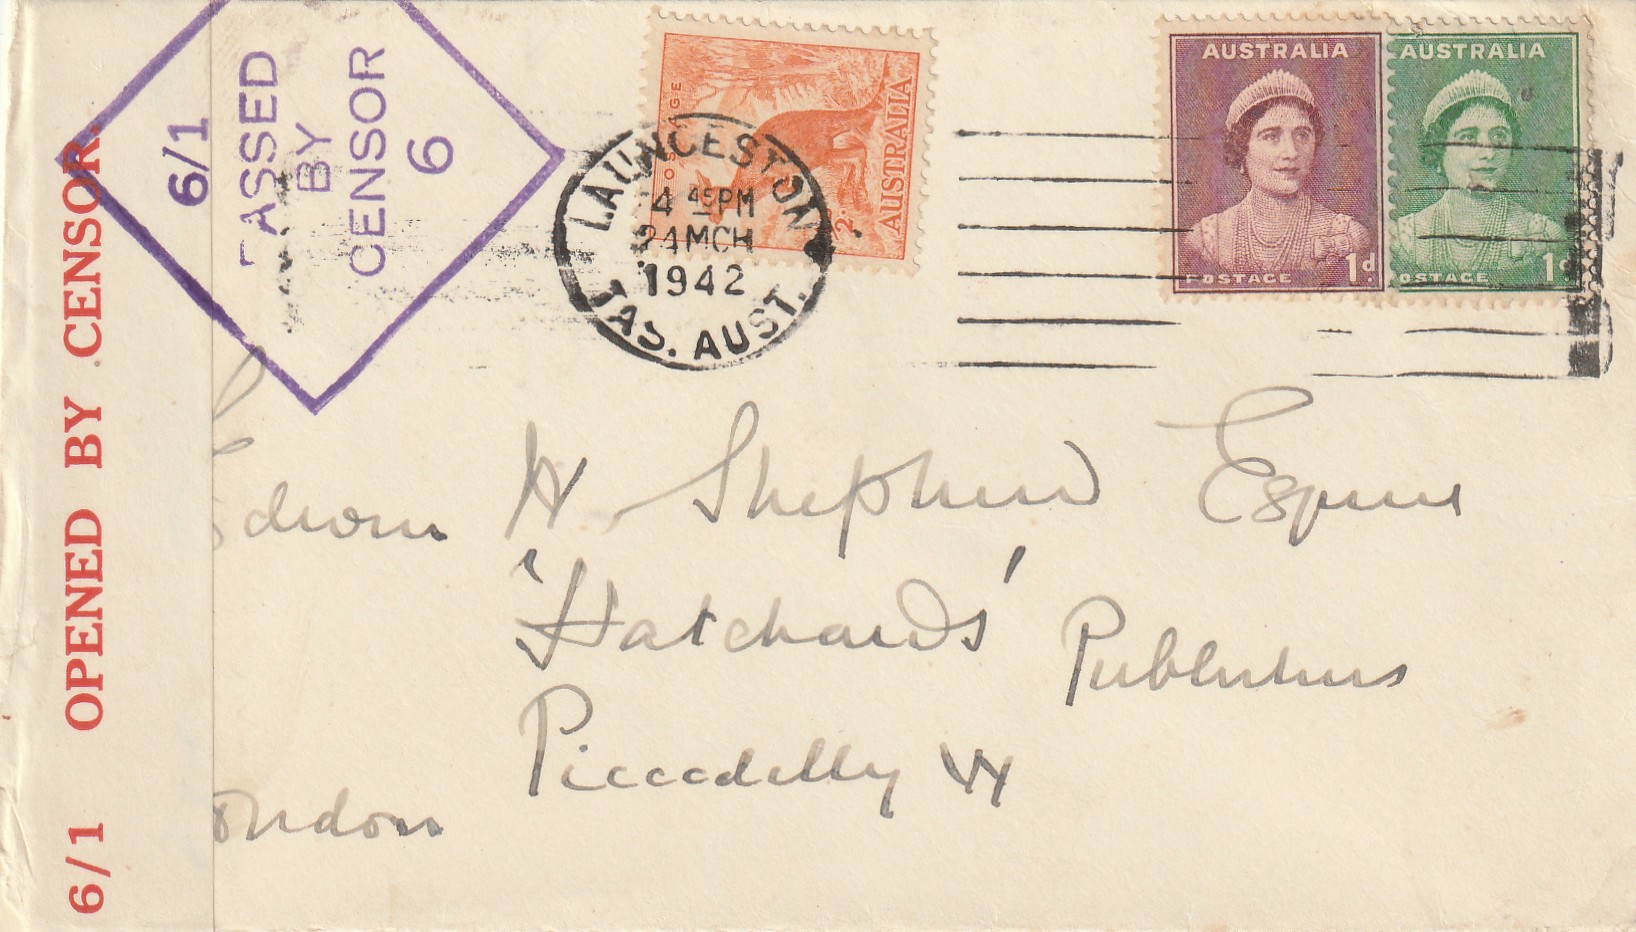 6/1 OPENED BY CENSOR.
6/1
PASSED
BY
CENSOR
6
POSTAGE
AUSTRALIA
2D
LAUNCESTON
4 45PM
24MCH
1942
TAS. AUST.
AUSTRALIA
POSTAGE 1d
AUSTRALIA
POSTAGE 1d
Edwin H. Shephard Esquire
'Hatchards' Publishers
Piccadilly W
London